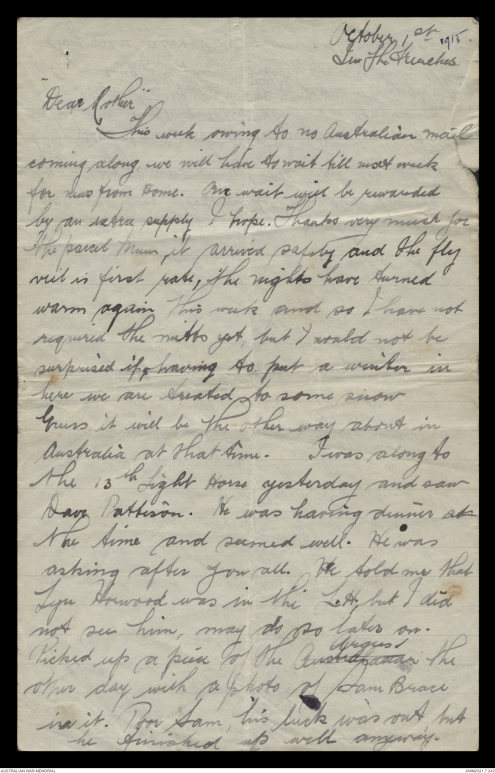 October 1st 1915.
In The Trenches
"Dear Mother"
This week owing to no Australian mail
coming along we will have to wait till next week
for news from home. Our wait will be rewarded
by an extra supply I hope. Thanks very much for
the parcel Mum, it arrived safely and the fly
veil is first rate, the nights have turned
warm again this week and so I have not
required the mitts yet, but I would not be
surprised if, having to put a winter in
here we are treated to some snow
Guess it will be the other way about in
Australia at that time. I was along to
the 13th Light Horse yesterday and saw
Dave Pattison. He was having dinner at
the time and seemed well. He was
asking after you all. He told me that
Horwood was in the L.H, but I did
not see him, may do so later on.
Picked up a piece of the Argus the
other day with a photo of Sam Brace
in it. Poor Sam, his luck was out, but
he finished up well anyway.
AUSTRALIAN WAR MEMORIAL